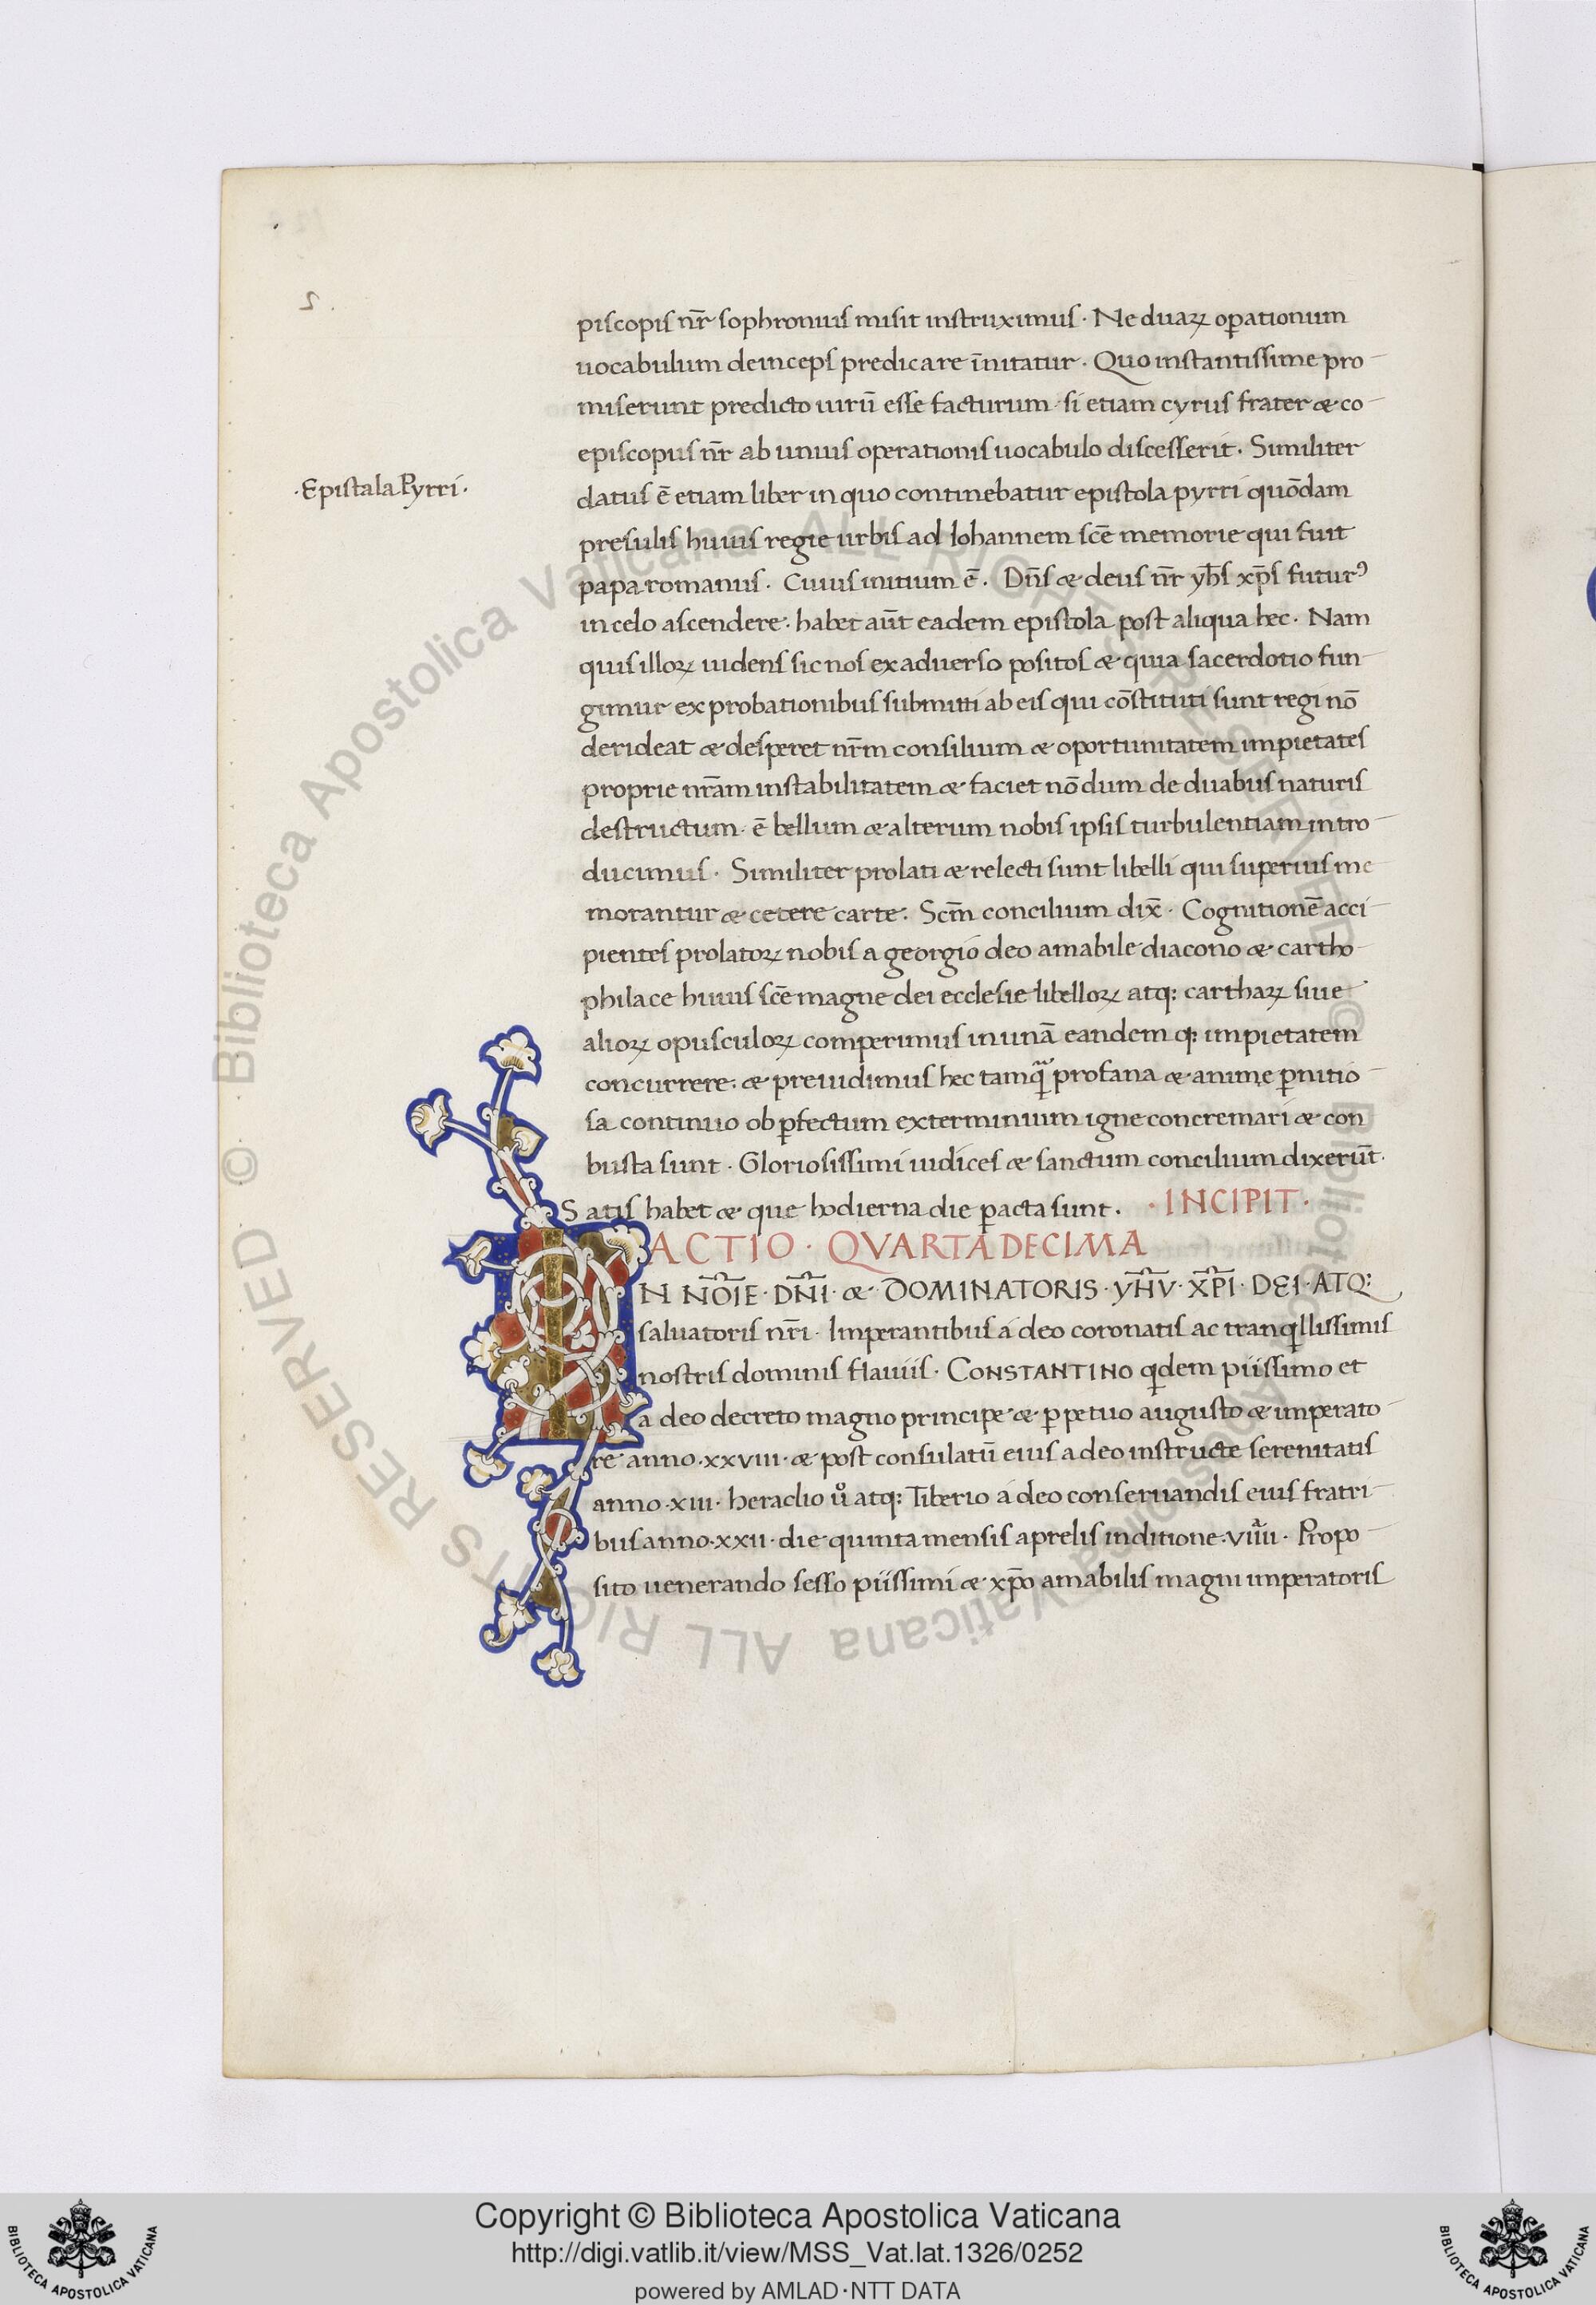 ·Epistala Pyrri·
piscopis nr̄ sophronius misit instruximus · Ne duaꝝ oꝑationum
uocabulum deinceps predicare īnitatur · Quo instantissime pro-
miserunt predicto uirū esse facturum · si etiam cyrus frater & co-
episcopus nr̄ ab unius operationis uocabulo discesserit · Similiter
datus ē etiam liber in quo continebatur epistola pyrri quōdam
presulis huius regie urbis ad Iohannem scē memorie qui fuit
papa romanus · Cuius initium ē · Dn̄s & deus nr̄ yhs̄ xp̄s futurꝰ
in celo ascendere · habet aūt eadem epistola post aliqua hec · Nam
quis illoꝝ uidens sic nos ex aduerso positos & quia sacerdotio fun-
gimur ex probationibus submitti ab eis qui cōstituti sunt regi nō
derideat & desperet nr̄m consilium & oportunitatem impietates
proprie nr̄am instabilitatem & faciet nō dum de duabus naturis
destructum · ē bellum & alterum nobis ipsis turbulentiam intro-
ducimus · Similiter prolati & relecti sunt libelli qui superius me
morantur & cetere carte · Scm̄ concilium dix̄ · Cognitionē acci-
pientes prolatoꝝ nobis a georgio deo amabile diacono & cartho-
philace huius scē magne dei ecclesie libelloꝝ atq: carthaꝝ siue
alioꝝ opusculoꝝ comperimus in unā eandem q: impietatem
concurrere · & preuidimus hec tamqᷓ profana & anime ꝑnitio-
sa continuo ob ꝑfectum exterminium igne concremari & con
busta sunt · Gloriosissimi iudices & sanctum concilium dixerūt ·
Satis habet & que hodierna die ꝑacta sunt · · INCIPIT ·
ACTIO · QVARTADECIMA
IN NŌIE · DN̄I · & · DOMINATORIS · YH̄V · XP̄I · DEI · ATQ:
saluatoris nr̄i · Imperantibus a deo coronatis ac tranqͥllissimis
nostris dominis flauiis · CONSTANTINO qͥdem piissimo et
a deo decreto magno principe & ꝑpetuo augusto & imperato-
re anno · xxviii · & post consulatū eius a deo instructe serenitatis
anno · xiii · heraclio uͦ atq: Tiberio a deo conseruandis eius fratri-
bus anno · xxii · die quinta mensis aprelis inditione · viiii · Propo-
sito uenerando sesso piissimi & xp̄o amabilis magni imperatoris
Copyright © Biblioteca Apostolica Vaticana
http://digi.vatlib.it/view/MSS_Vat.lat.1326/0252
powered by AMLAD·NTT DATA
BIBLIOTECA APOSTOLICA VATICANA
BIBLIOTECA APOSTOLICA VATICANA
© Biblioteca Apostolica Vaticana ALL RIGHTS RESERVED
© Biblioteca Apostolica Vaticana ALL RIGHTS RESERVED